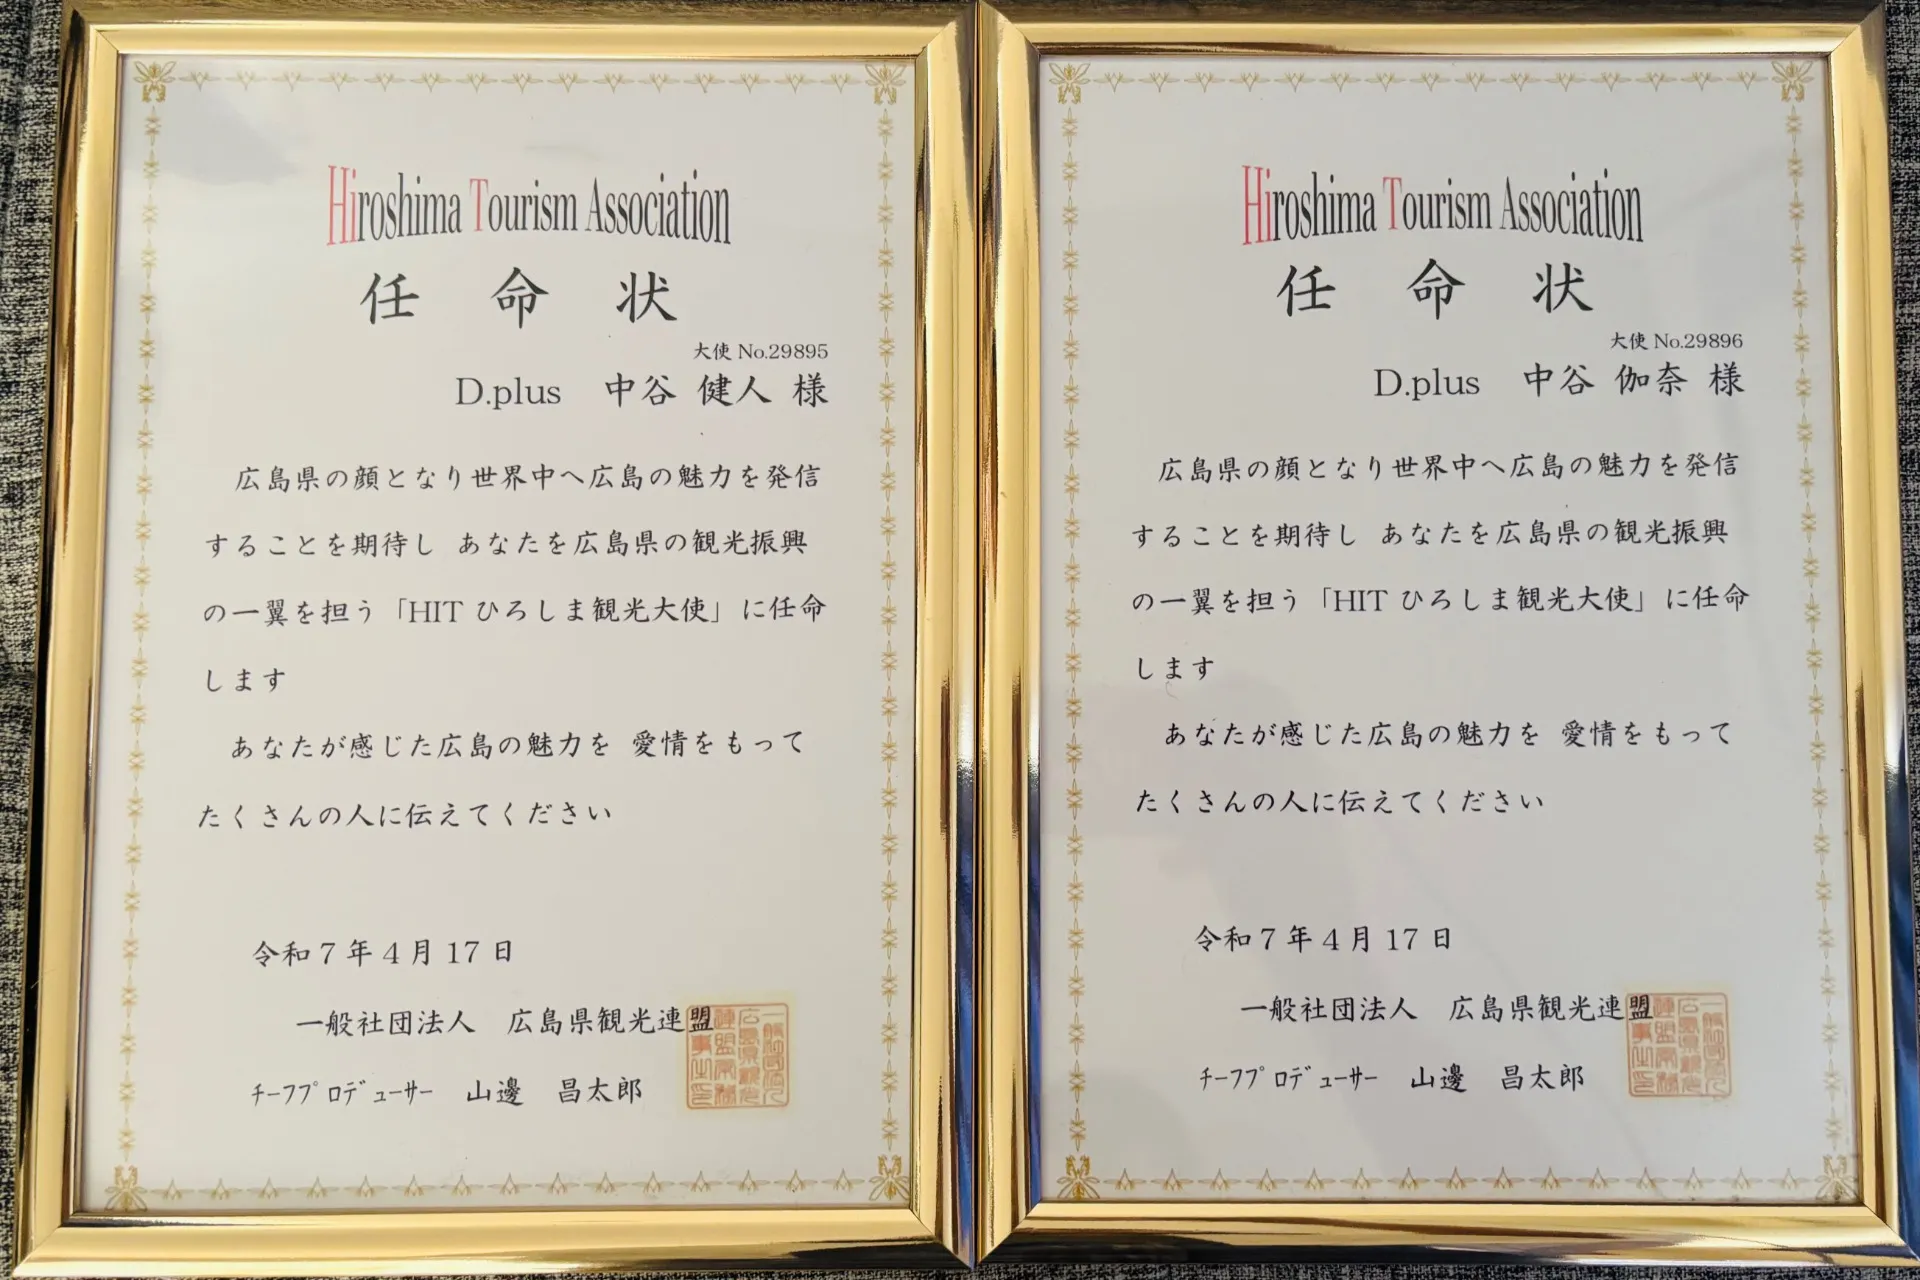 Hiroshima Tourism Association
任命状
大使 No.29895
D.plus 中谷 健人 様
広島県の顔となり世界中へ広島の魅力を発信
することを期待し あなたを広島県の観光振興
の一翼を担う「HIT ひろしま観光大使」に任命
します
あなたが感じた広島の魅力を 愛情をもって
たくさんの人に伝えてください
令和7年4月17日
一般社団法人 広島県観光連盟
ﾁｰﾌﾌﾟﾛﾃﾞｭｰｻｰ 山邊 昌太郎
Hiroshima Tourism Association
任命状
大使 No.29896
D.plus 中谷 伽奈 様
広島県の顔となり世界中へ広島の魅力を発信
することを期待し あなたを広島県の観光振興
の一翼を担う「HIT ひろしま観光大使」に任命
します
あなたが感じた広島の魅力を 愛情をもって
たくさんの人に伝えてください
令和7年4月17日
一般社団法人 広島県観光連盟
ﾁｰﾌﾌﾟﾛﾃﾞｭｰｻｰ 山邊 昌太郎